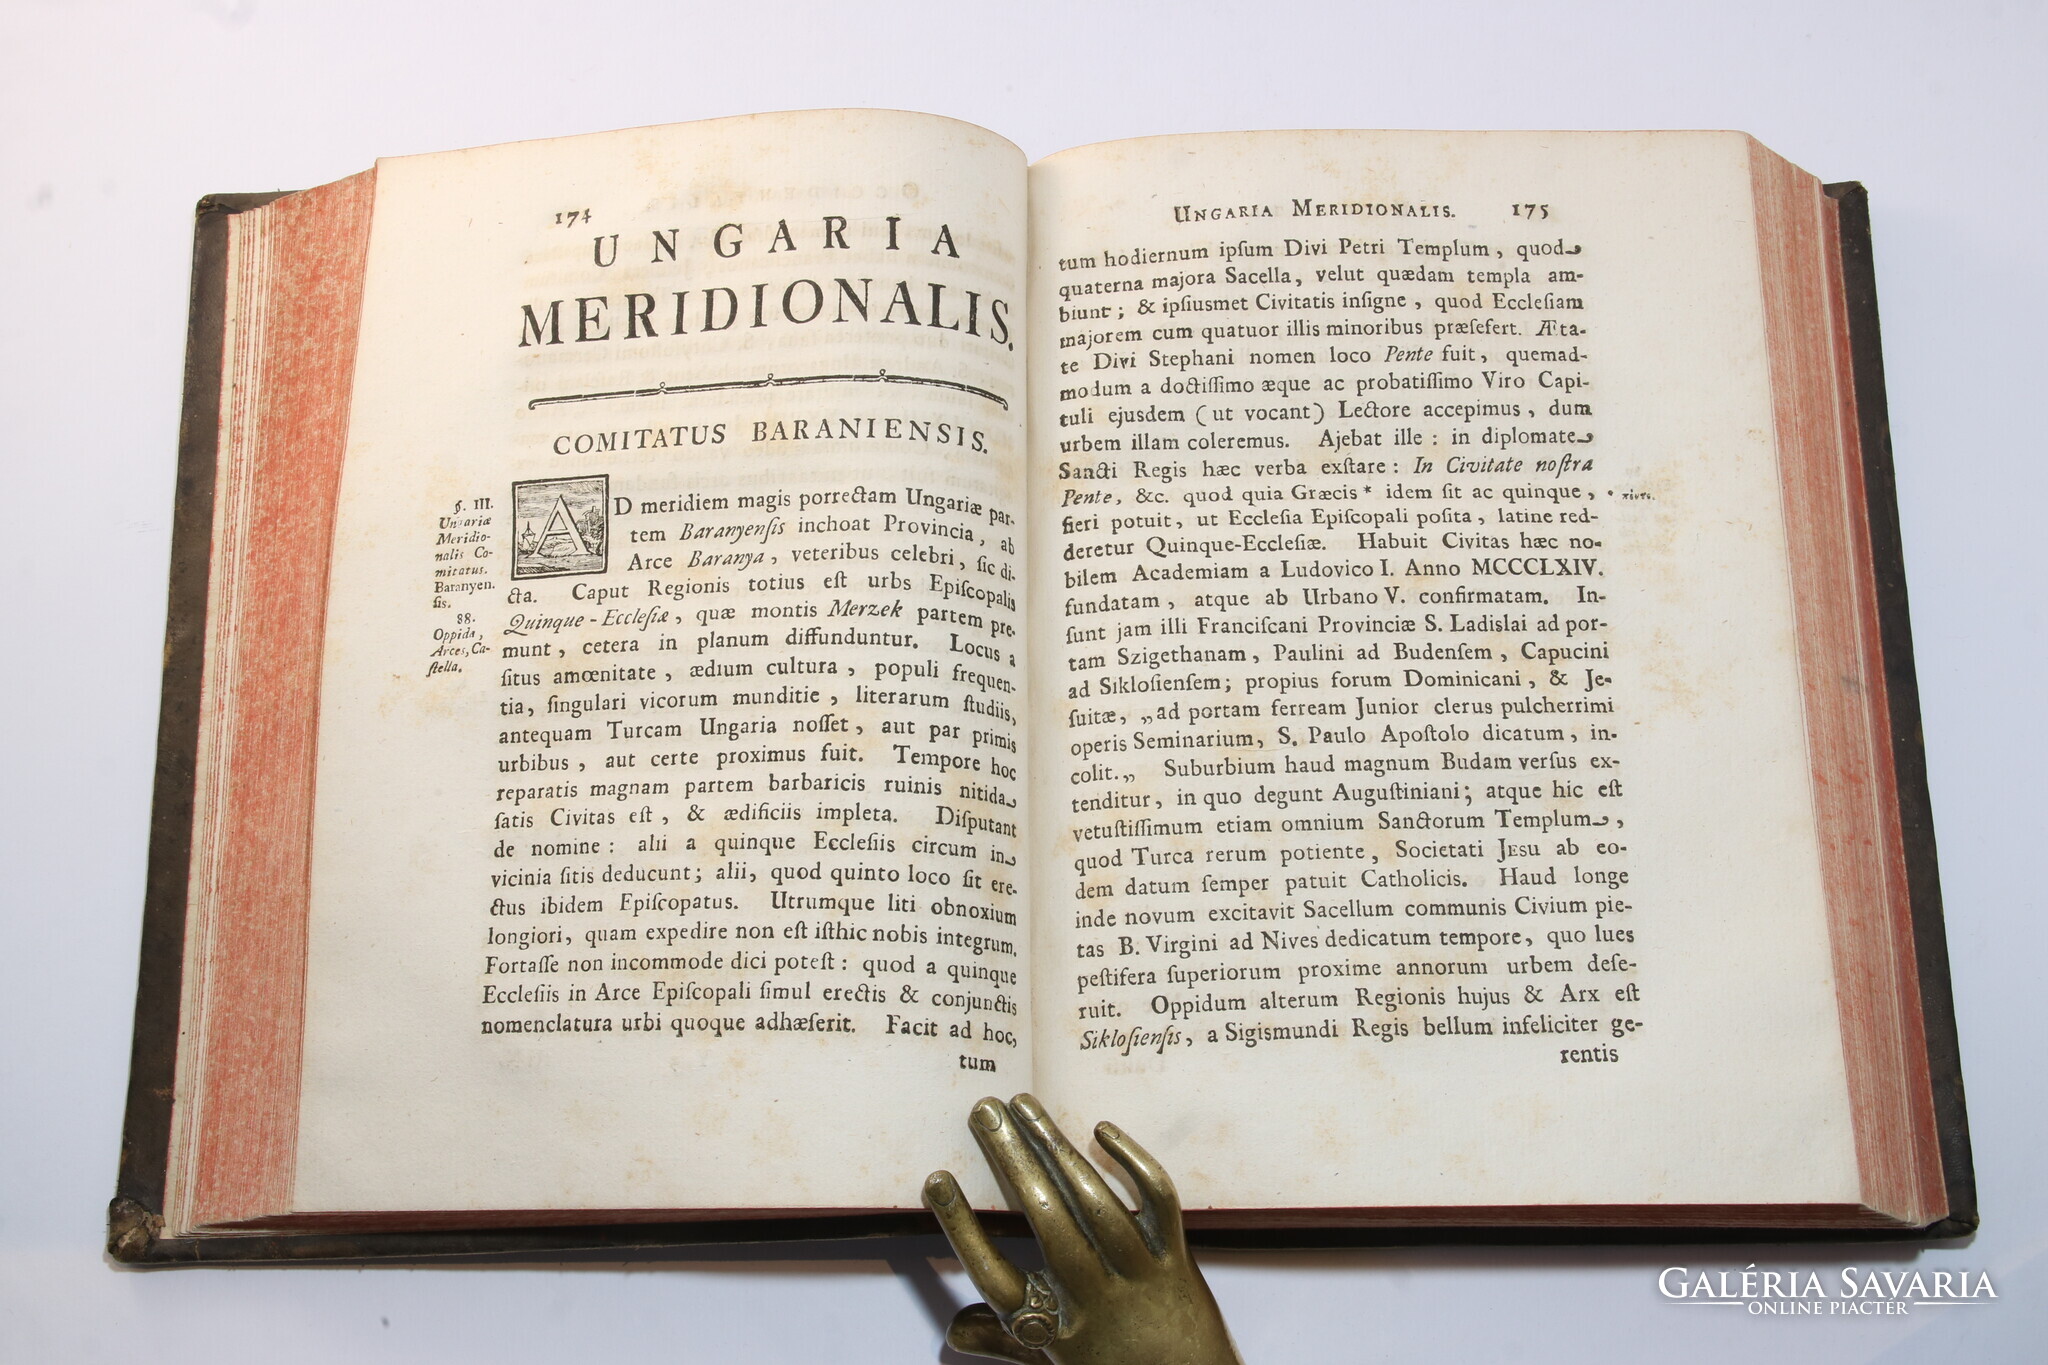 174
UNGARIA
MERIDIONALIS.
COMITATUS BARANIENSIS.
§. III.
Ungariæ
Meridio-
nalis Co-
mitatus.
Baranyen.
ſis.
88.
Oppida,
Arces, Ca-
ſtella.
AD meridiem magis porrectam Ungariæ par-
tem Baranyenſis inchoat Provincia, ab
Arce Baranya, veteribus celebri, ſic di-
cta. Caput Regionis totius eſt urbs Epiſcopalis
Quinque-Eccleſiæ, quæ montis Merzek partem pre-
munt, cetera in planum diffunduntur. Locus a
ſitus amœnitate, ædium cultura, populi frequen-
tia, ſingulari vicorum munditie, literarum ſtudiis,
antequam Turcam Ungaria noſſet, aut par primis
urbibus, aut certe proximus fuit. Tempore hoc
reparatis magnam partem barbaricis ruinis nitida
ſatis Civitas eſt, & ædificiis impleta. Diſputant
de nomine: alii a quinque Eccleſiis circum in
vicinia ſitis deducunt; alii, quod quinto loco ſit ere-
ctus ibidem Epiſcopatus. Utrumque liti obnoxium
longiori, quam expedire non eſt iſthic nobis integrum.
Fortaſſe non incommode dici poteſt: quod a quinque
Eccleſiis in Arce Epiſcopali ſimul erectis & conjunctis
nomenclatura urbi quoque adhæſerit. Facit ad hoc,
tum
UNGARIA MERIDIONALIS. 175
tum hodiernum ipſum Divi Petri Templum, quod
quaterna majora Sacella, velut quædam templa am-
biunt; & ipſiusmet Civitatis inſigne, quod Eccleſiam
majorem cum quatuor illis minoribus præſefert. Æta-
te Divi Stephani nomen loco Pente fuit, quemad-
modum a doctiſſimo æque ac probatiſſimo Viro Capi-
tuli ejusdem (ut vocant) Lectore accepimus, dum
urbem illam coleremus. Ajebat ille: in diplomate
Sancti Regis hæc verba exſtare: In Civitate noſtra
Pente, &c. quod quia Græcis * idem ſit ac quinque,
* πέντε.
fieri potuit, ut Eccleſia Epiſcopali poſita, latine red-
deretur Quinque-Eccleſiæ. Habuit Civitas hæc no-
bilem Academiam a Ludovico I. Anno MCCCLXIV.
fundatam, atque ab Urbano V. confirmatam. In-
ſunt jam illi Franciſcani Provinciæ S. Ladislai ad por-
tam Szigethanam, Paulini ad Budenſem, Capucini
ad Sikloſienſem; propius forum Dominicani, & Je-
ſuitæ, „ad portam ferream Junior clerus pulcherrimi
operis Seminarium, S. Paulo Apoſtolo dicatum, in-
colit.„ Suburbium haud magnum Budam verſus ex-
tenditur, in quo degunt Auguſtiniani; atque hic eſt
vetuſtiſſimum etiam omnium Sanctorum Templum,
quod Turca rerum potiente, Societati JESU ab eo-
dem datum ſemper patuit Catholicis. Haud longe
inde novum excitavit Sacellum communis Civium pie-
tas B. Virgini ad Nives dedicatum tempore, quo lues
peſtifera ſuperiorum proxime annorum urbem deſe-
ruit. Oppidum alterum Regionis hujus & Arx eſt
Sikloſienſis, a Sigismundi Regis bellum infeliciter ge-
rentis
GALÉRIA SAVARIA
ONLINE PIACTÉR